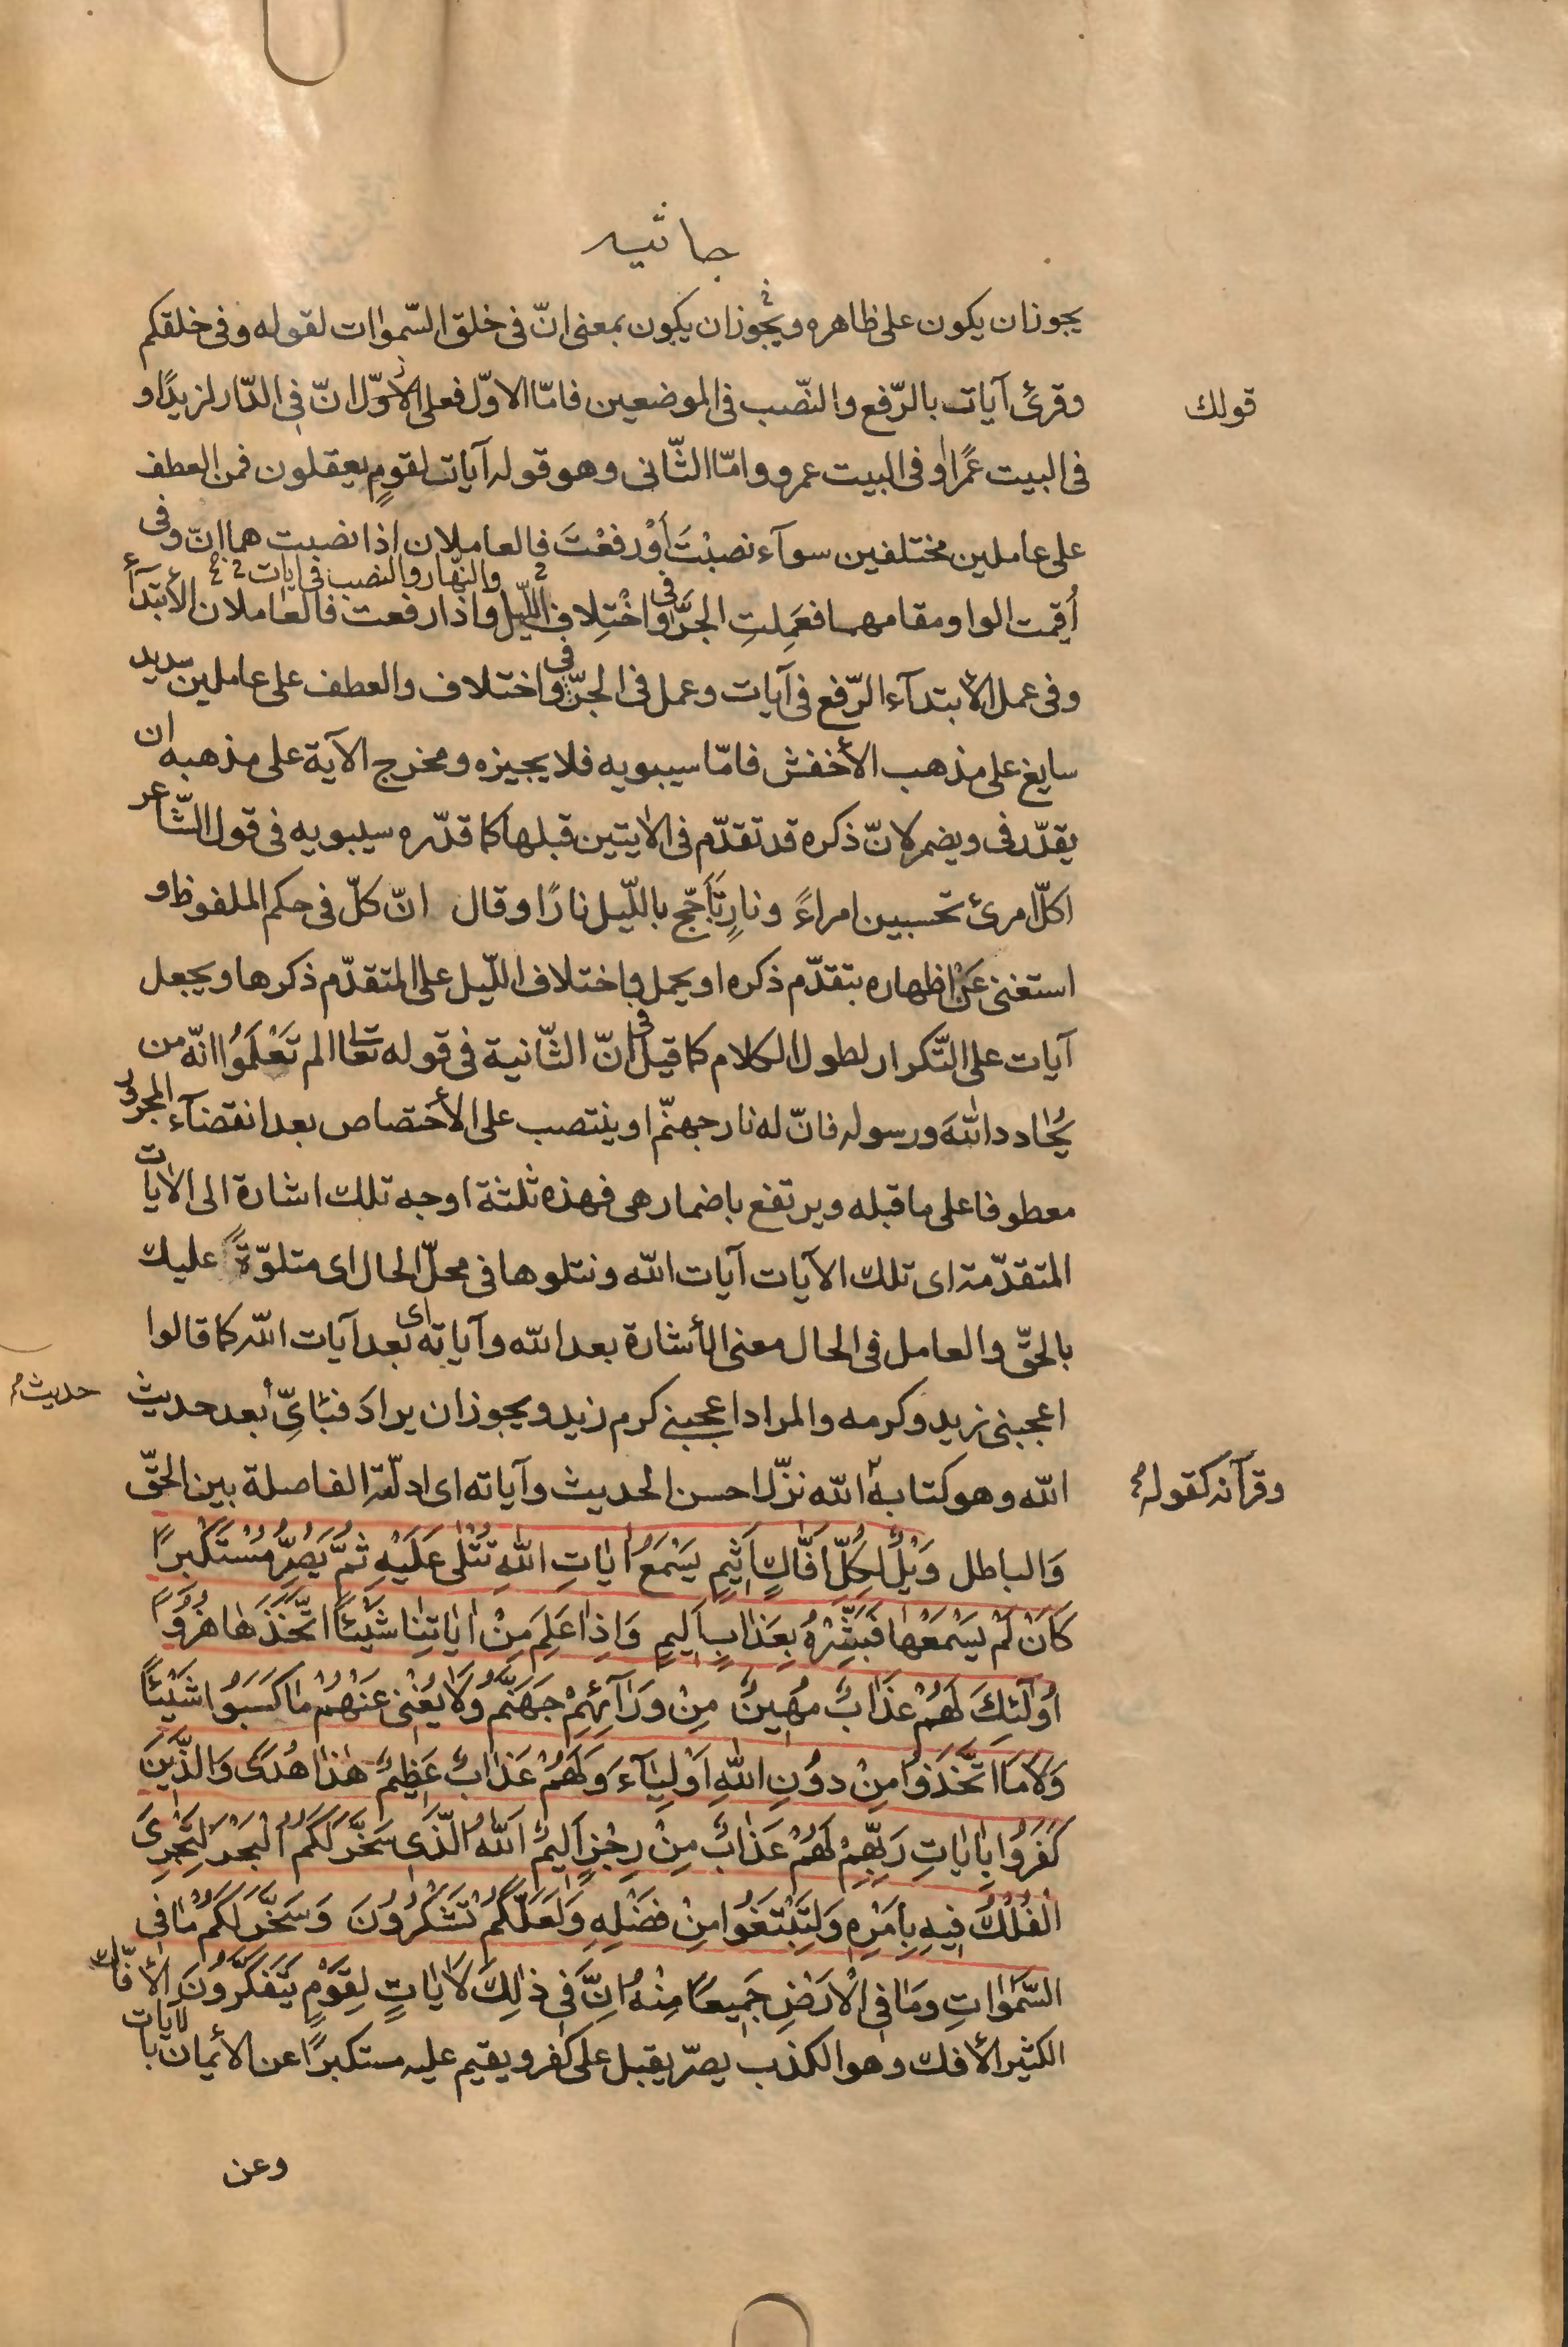 جاثيه
يجوز ان يكون على ظاهره ويجوز ان يكون بمعنى انّ فى خلق السّموات لقوله وفى خلقكم
وقرئ آيات بالرّفع والنّصب فى الموضعين فامّا الاوّل فعلى الأوّل انّ فى الدّار لزيدًا و
قولك
فى البيت عمرًا او فى البيت عمرو وامّا الثّانى وهو قوله آيات لقومٍ يعقلون فمن العطف
على عاملين مختلفين سوآء نصبْتَ أوْ رفعْتَ فالعاملان إذا نصبت هما انّ وفى
والنّهار والنصب فى ايات
أُقيمت الواو مقامهما فعَمِلتِ الجرّ فى واخْتِلاف اللّيل واذا رفعت فالعاملان الأبتدآء
وفى عمل الأبتدآء الرّفع فى آيات وعمل فى الجرّ فى واختلاف والعطف على عاملين سديد
سايغ على مذهب الأخفش فامّا سيبويه فلا يجيزه ومخرج الآية على مذهبه ان
يقدّر فى ويضمر لانّ ذكره قد تقدّم فى الايتين قبلها كما قدّره سيبويه فى قول الشّاعر
اكلّ امرئ تحسبين امراءً ونارٍ تأجّج باللّيل نارًا وقال انّ كلّ فى حكم الملفوظ و
استغنى عَنْ اظهاره بتقدّم ذكره او يحمل واختلاف اللّيل على المتقدّم ذكرها ويجعل
آيات على التّكرار لطول الكلام كما قيل فى انّ الثّانية فى قوله تعا الم تَعْلَمُوا انّه من
يُحادد اللّه ورسوله فانّ له نار جهنّم او ينتصب على الأختصاص بعد انقضآء المجرور
معطوفا على ما قبله ويرتفع باضمار هى فهذه ثلثة اوجه تلك اشارة الى الايات
المتقدّمة اى تلك الآيات آيات اللّه ونتلوها فى محلّ الحال اى متلوّةً عليك
بالحقّ والعامل فى الحال معنى الأشارة بعد اللّه وآياته اى بعد آيات اللّه كما قالوا
اعجبنى زيد وكرمه والمراد اعجبنى كرم زيد ويجوز ان يراد فبأىّ بعد حديث
حديث
اللّه وهو كتابه اللّه نزّل احسن الحديث وآياته اى ادلّته الفاصلة بين الحقّ
وقرآنه كقوله
وَالباطل وَيْلٌ لِكُلِّ اَفَّاكٍ اَثِيمٍ يَسْمَعُ اٰيَاتِ اللّٰهِ تُتْلٰى عَلَيْهِ ثُمَّ يُصِرُّ مُسْتَكْبِرًا
كَاَنْ لَمْ يَسْمَعْهَا فَبَشِّرْهُ بِعَذَابٍ اَلِيمٍ وَاِذَا عَلِمَ مِنْ اٰيَاتِنَا شَيْئًا اتَّخَذَهَا هُزُوًا
اُولٰئِكَ لَهُمْ عَذَابٌ مُهِينٌ مِنْ وَرَآئِهِمْ جَهَنَّمُ وَلَا يُغْنِى عَنْهُمْ مَا كَسَبُوا شَيْئًا
وَلَا مَا اتَّخَذُوا مِنْ دُونِ اللّٰهِ اَوْلِيَآءَ وَلَهُمْ عَذَابٌ عَظِيمٌ هٰذَا هُدًى وَالَّذِينَ
كَفَرُوا بِاٰيَاتِ رَبِّهِمْ لَهُمْ عَذَابٌ مِنْ رِجْزٍ اَلِيمٌ اَللّٰهُ الَّذِى سَخَّرَ لَكُمُ الْبَحْرَ لِتَجْرِىَ
الْفُلْكُ فِيهِ بِاَمْرِهِ وَلِتَبْتَغُوا مِنْ فَضْلِهِ وَلَعَلَّكُمْ تَشْكُرُونَ وَسَخَّرَ لَكُمْ مَا فِى
السَّمٰوَاتِ وَمَا فِى الْاَرْضِ جَمِيعًا مِنْهُ اِنَّ فِى ذٰلِكَ لَاٰيَاتٍ لِقَوْمٍ يَتَفَكَّرُونَ الأفّاك
الكثير الأفك وهو الكذب يصرّ يقبل على كفر ويقيم عليه مستكبرًا عن الأيمان بالآيات
وعن